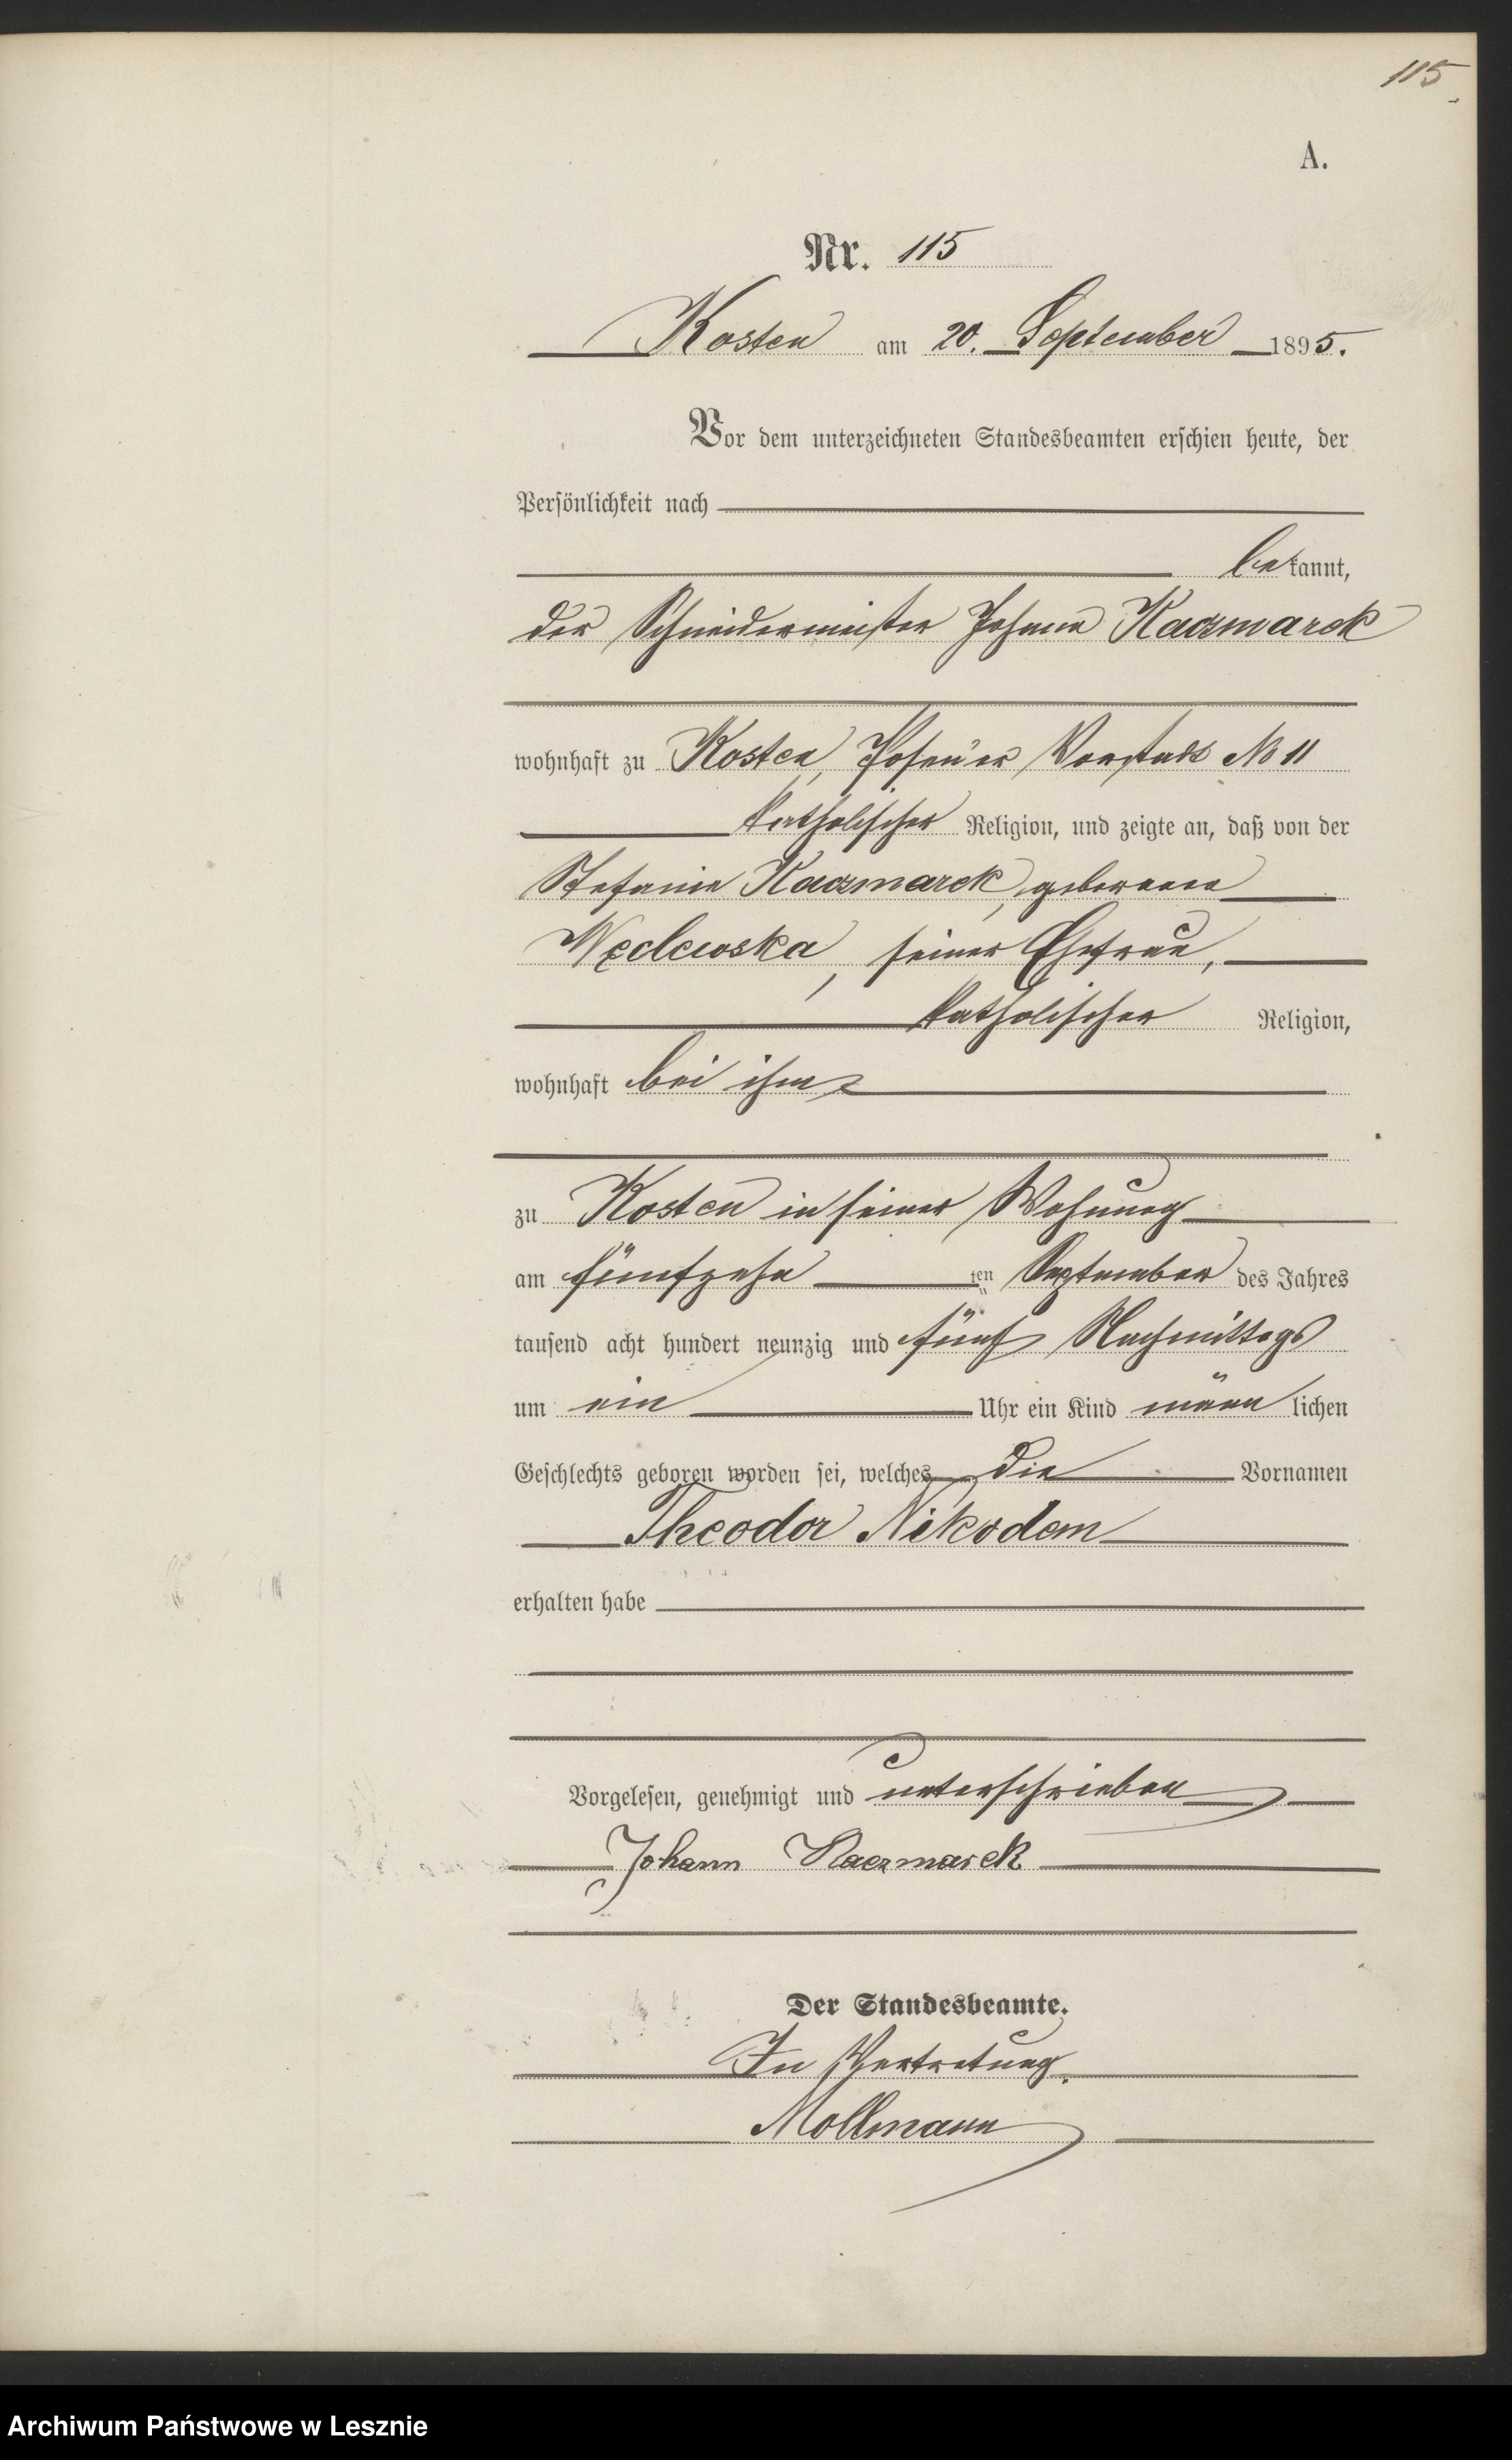 115.
A.
Nr. 115
Kosten am 20. September 1895.
Vor dem unterzeichneten Standesbeamten erschien heute, der
Persönlichkeit nach
bekannt,
der Schneidermeister Johann Kaczmarek
wohnhaft zu Kosten, Posen'er Vorstadt No 11
katholischer Religion, und zeigte an, daß von der
Stefanie Kaczmarek, geborenen
Węclewska, seiner Ehefrau,
katholischer Religion,
wohnhaft bei ihm
zu Kosten in seiner Wohnung
am fünfzehn ten September des Jahres
tausend acht hundert neunzig und fünf Nachmittags
um ein Uhr ein Kind männlichen
Geschlechts geboren worden sei, welches die Vornamen
Theodor Nikodem
erhalten habe
Vorgelesen, genehmigt und unterschrieben
Johann Kaczmarek
Der Standesbeamte.
In Vertretung.
Mollmann
Archiwum Państwowe w Lesznie